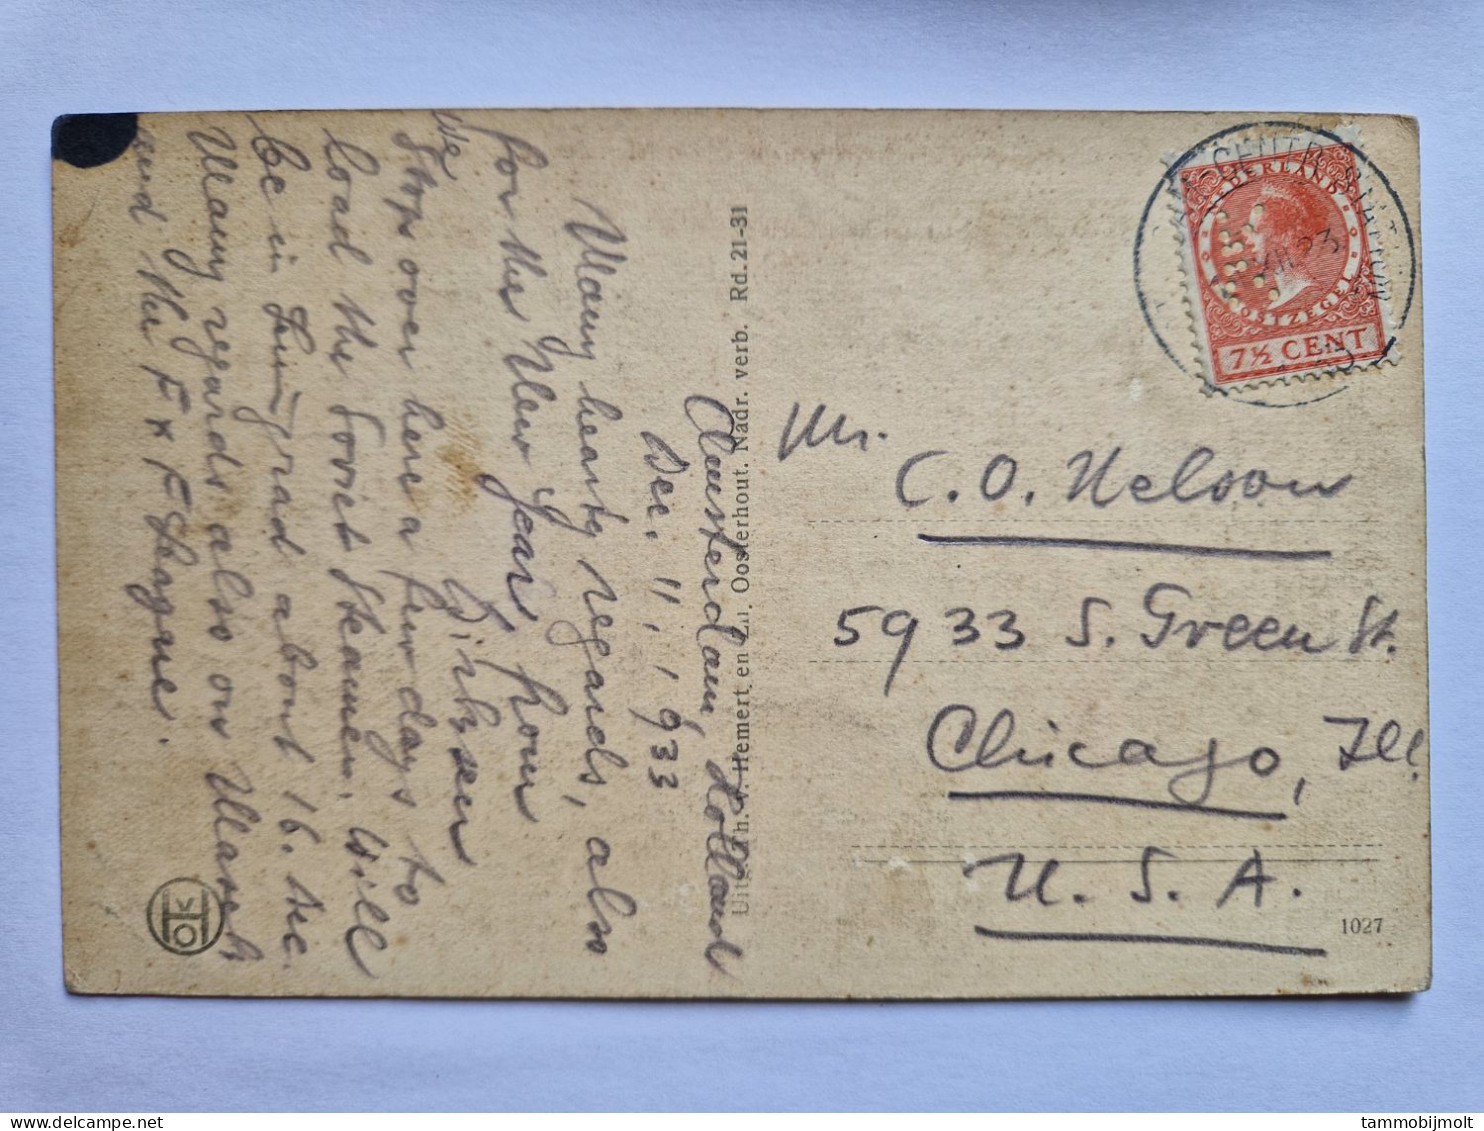 Amsterdam, Holland
Dec. 11, 1933
Many hearty regards, also
for the New Year, from
Dirksen
We
stops over here a few days to
load the Soviet Steamer. Will
be in Leningrad about 16. the
Many regards also on
and the F x F
Uitg. Th. v. Hemert en Zn. Oosterhout. Nadr. verb. Rd. 21-31
NEDERLAND
POSTZEGEL
7½ CENT
Mr.
C. O. Nelson
5933 S. Green St.
Chicago, Ill.
U. S. A.
1027
tammobijmolt
delcampe.net